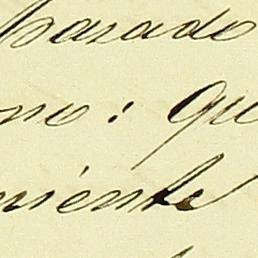 pasado
no: que
miente